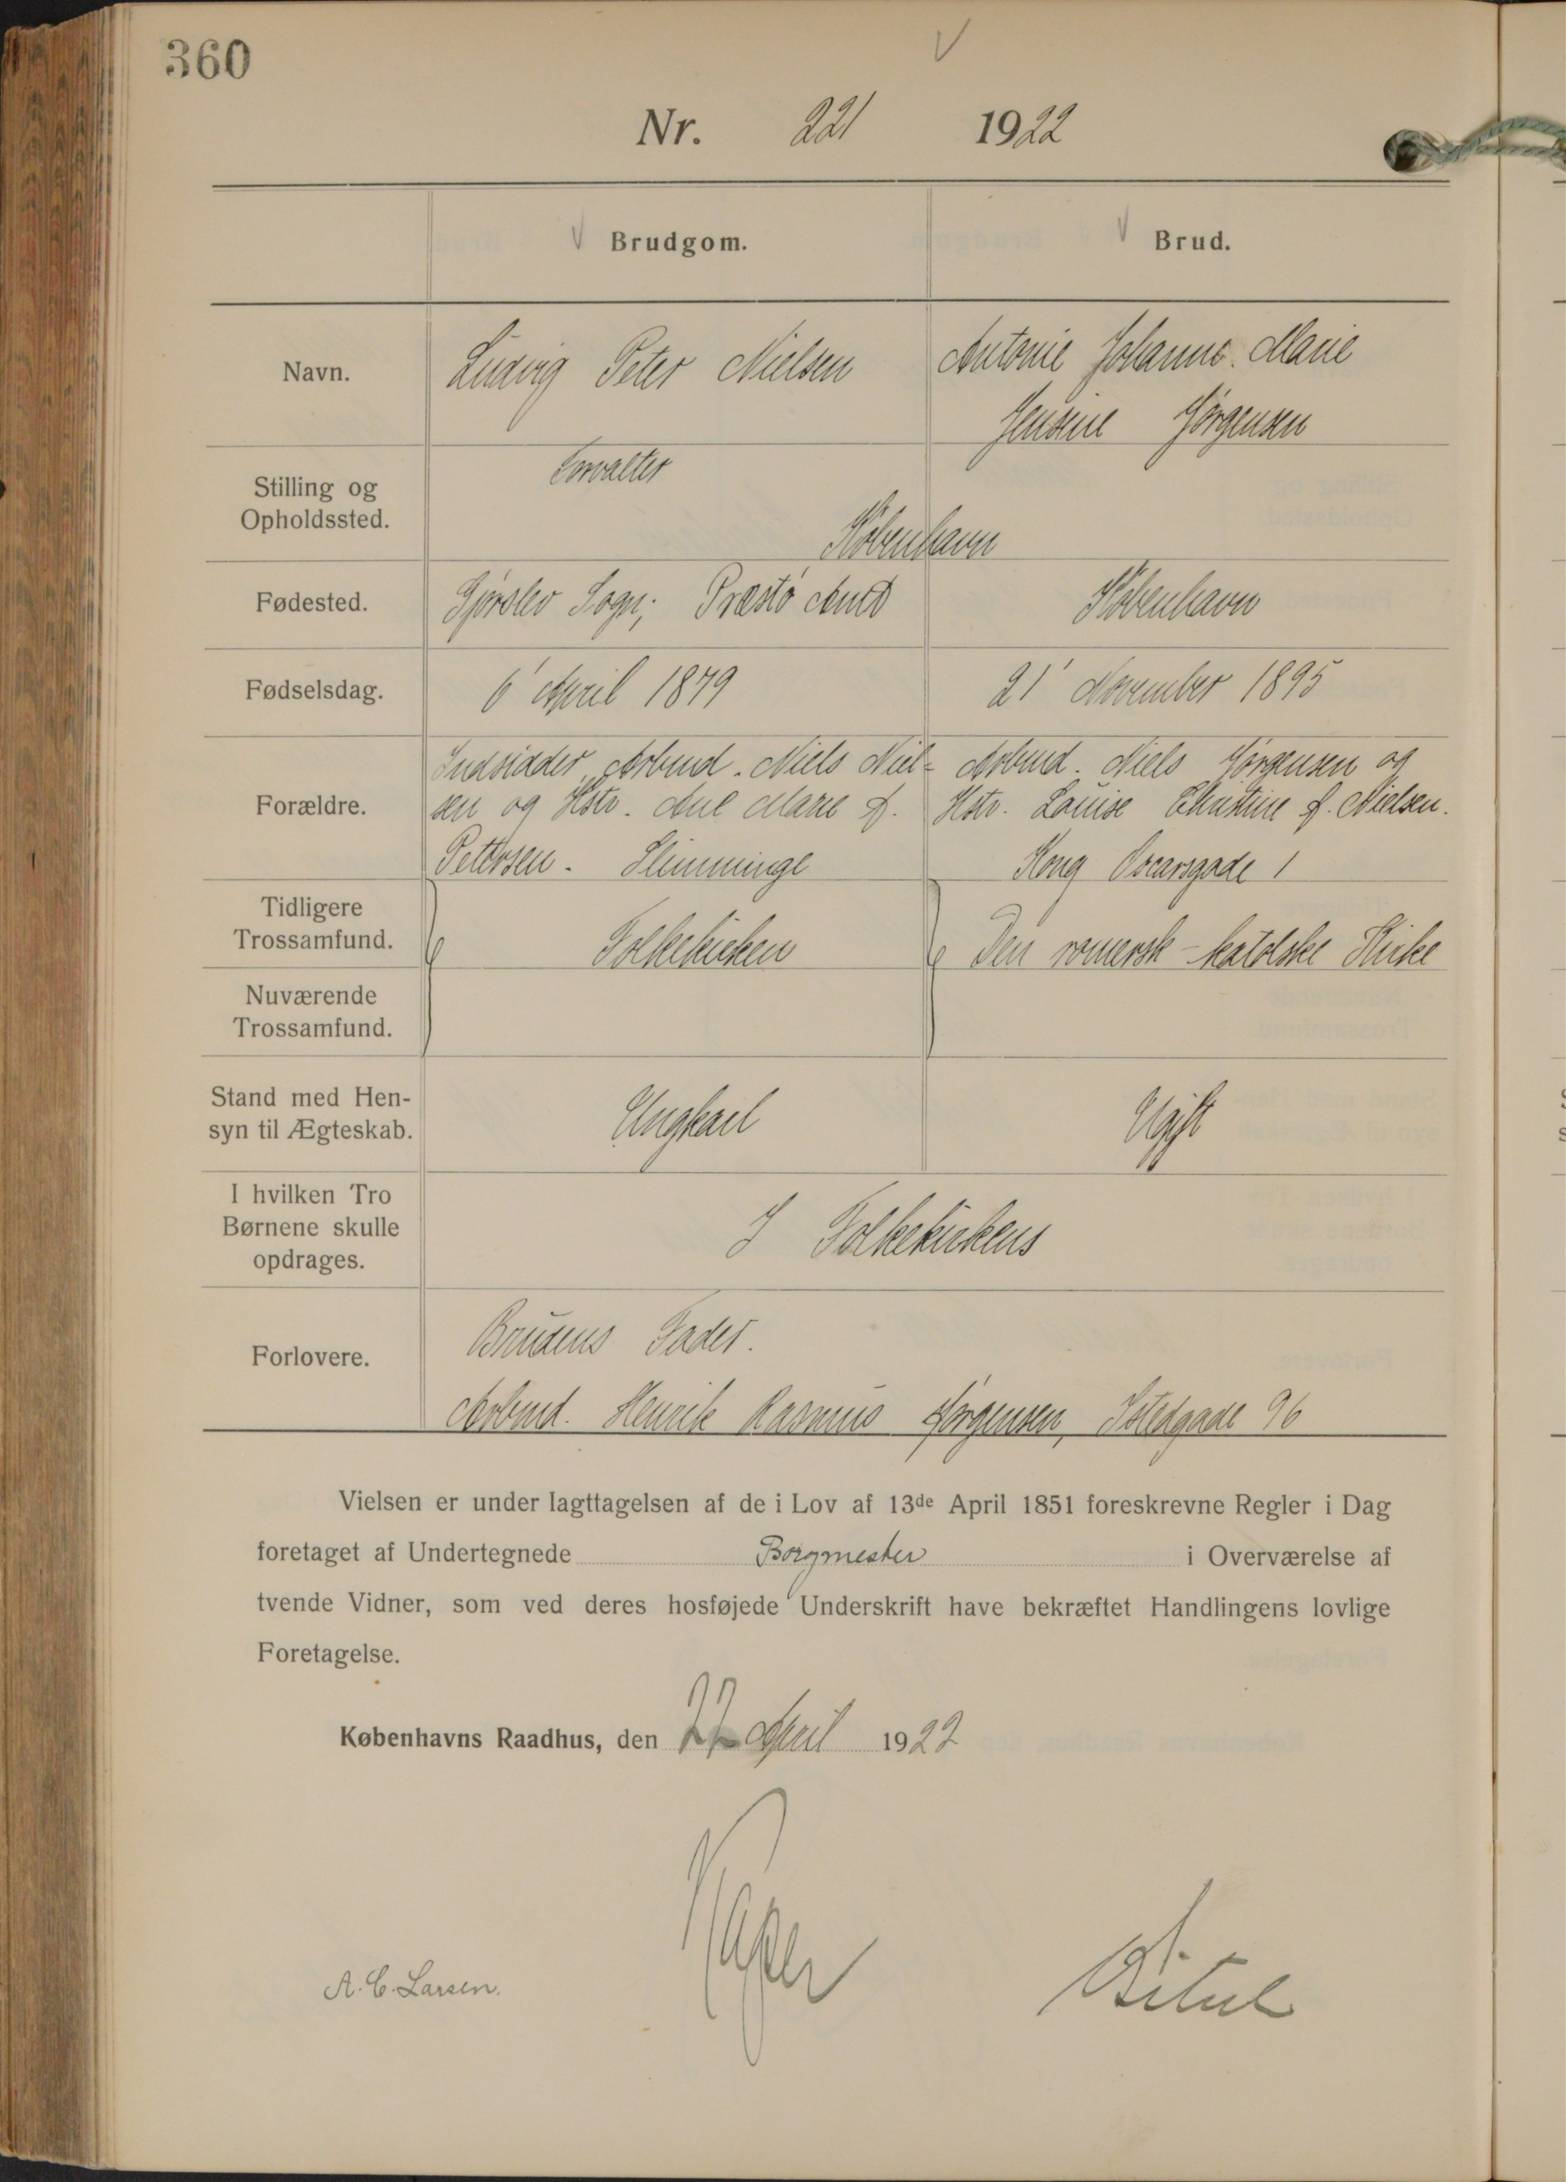 360
Nr. 221 1922
Brudgom. Brud.
Navn. Ludvig Peter Nielsen Antonie Johanne Marie
Jensine Jørgensen
Stilling og
Opholdssted. Forvalter
København
Fødested. Gjørslev Sogn; Præstø Amt København
Fødselsdag. 6' April 1879 21' November 1895
Forældre. Indsidder, Arbmd. Niels Niel-
sen og Hstr. Ane Marie f.
Petersen. Slimminge
Arbmd. Niels Jørgensen og
Hstr. Louise Christine f. Nielsen.
Kong Oscarsgade 1
Tidligere
Trossamfund. Folkekirken Den romersk-katolske Kirke
Nuværende
Trossamfund.
Stand med Hen-
syn til Ægteskab. Ungkarl Ugift
I hvilken Tro
Børnene skulle
opdrages. I Folkekirkens
Forlovere. Brudens Fader.
Arbmd. Henrik Rasmus Jørgensen, Istedgade 96
Vielsen er under Iagttagelsen af de i Lov af 13de April 1851 foreskrevne Regler i Dag
foretaget af Undertegnede Borgmester i Overværelse af
tvende Vidner, som ved deres hosføjede Underskrift have bekræftet Handlingens lovlige
Foretagelse.
Københavns Raadhus, den 22 April 1922
Kaper
A. C. Larsen.